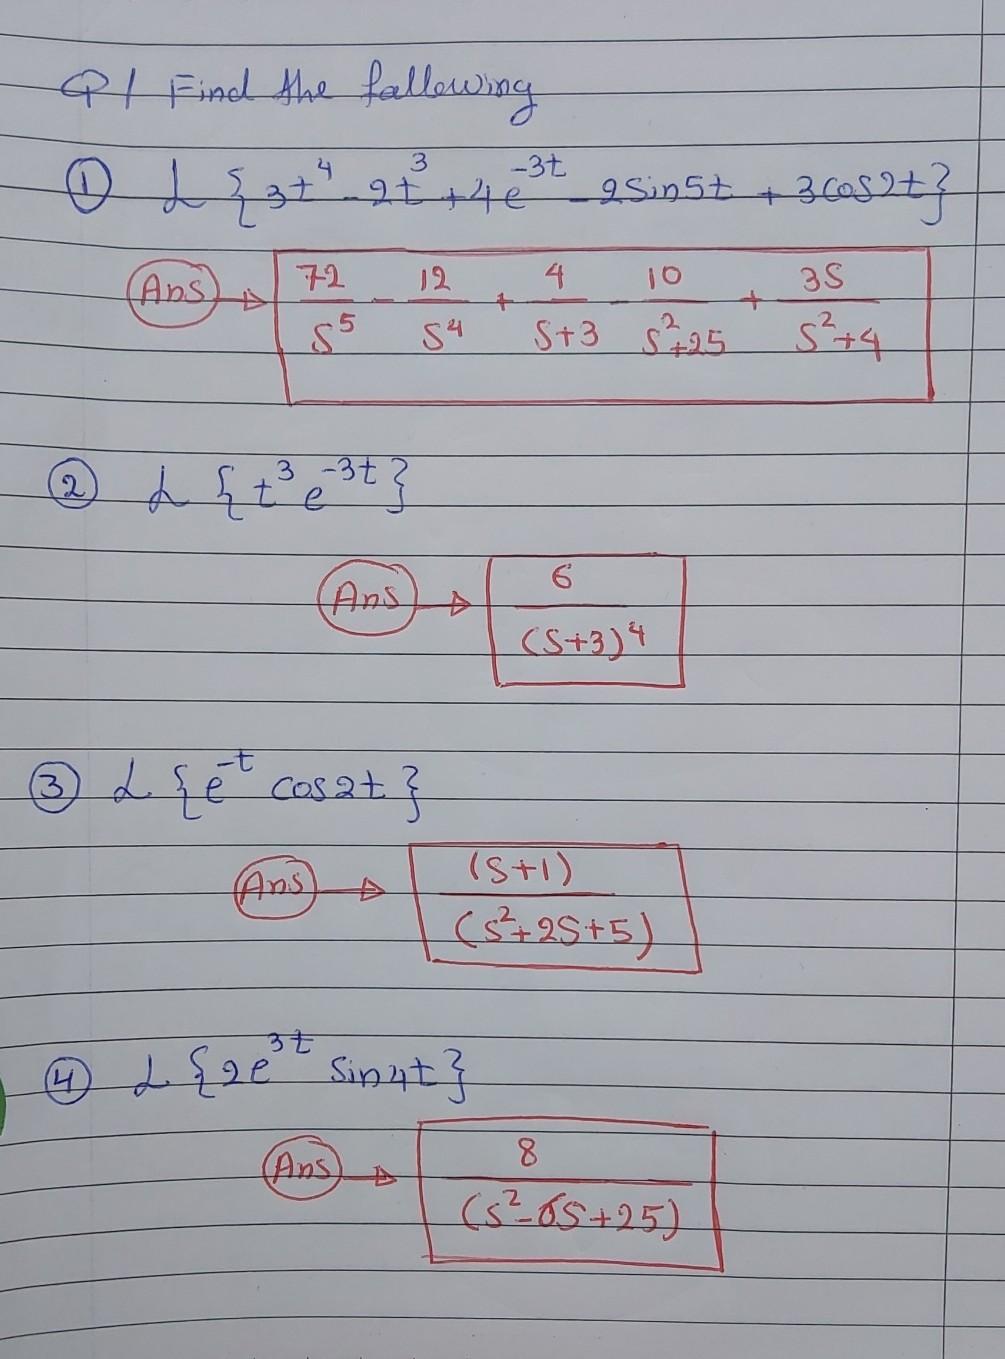 Q1 Find the following
① ℒ {3t⁴ - 2t³ + 4e⁻³ᵗ - 2sin5t + 3cos2t}
Ans → 72/S⁵ - 12/S⁴ + 4/(S+3) - 10/(S²+25) + 3S/(S²+4)
② ℒ {t³ e⁻³ᵗ}
Ans → 6/(S+3)⁴
③ ℒ {e⁻ᵗ cos2t}
Ans → (S+1)/(S²+2S+5)
④ ℒ {2e³ᵗ sin4t}
Ans → 8/(S²-6S+25)